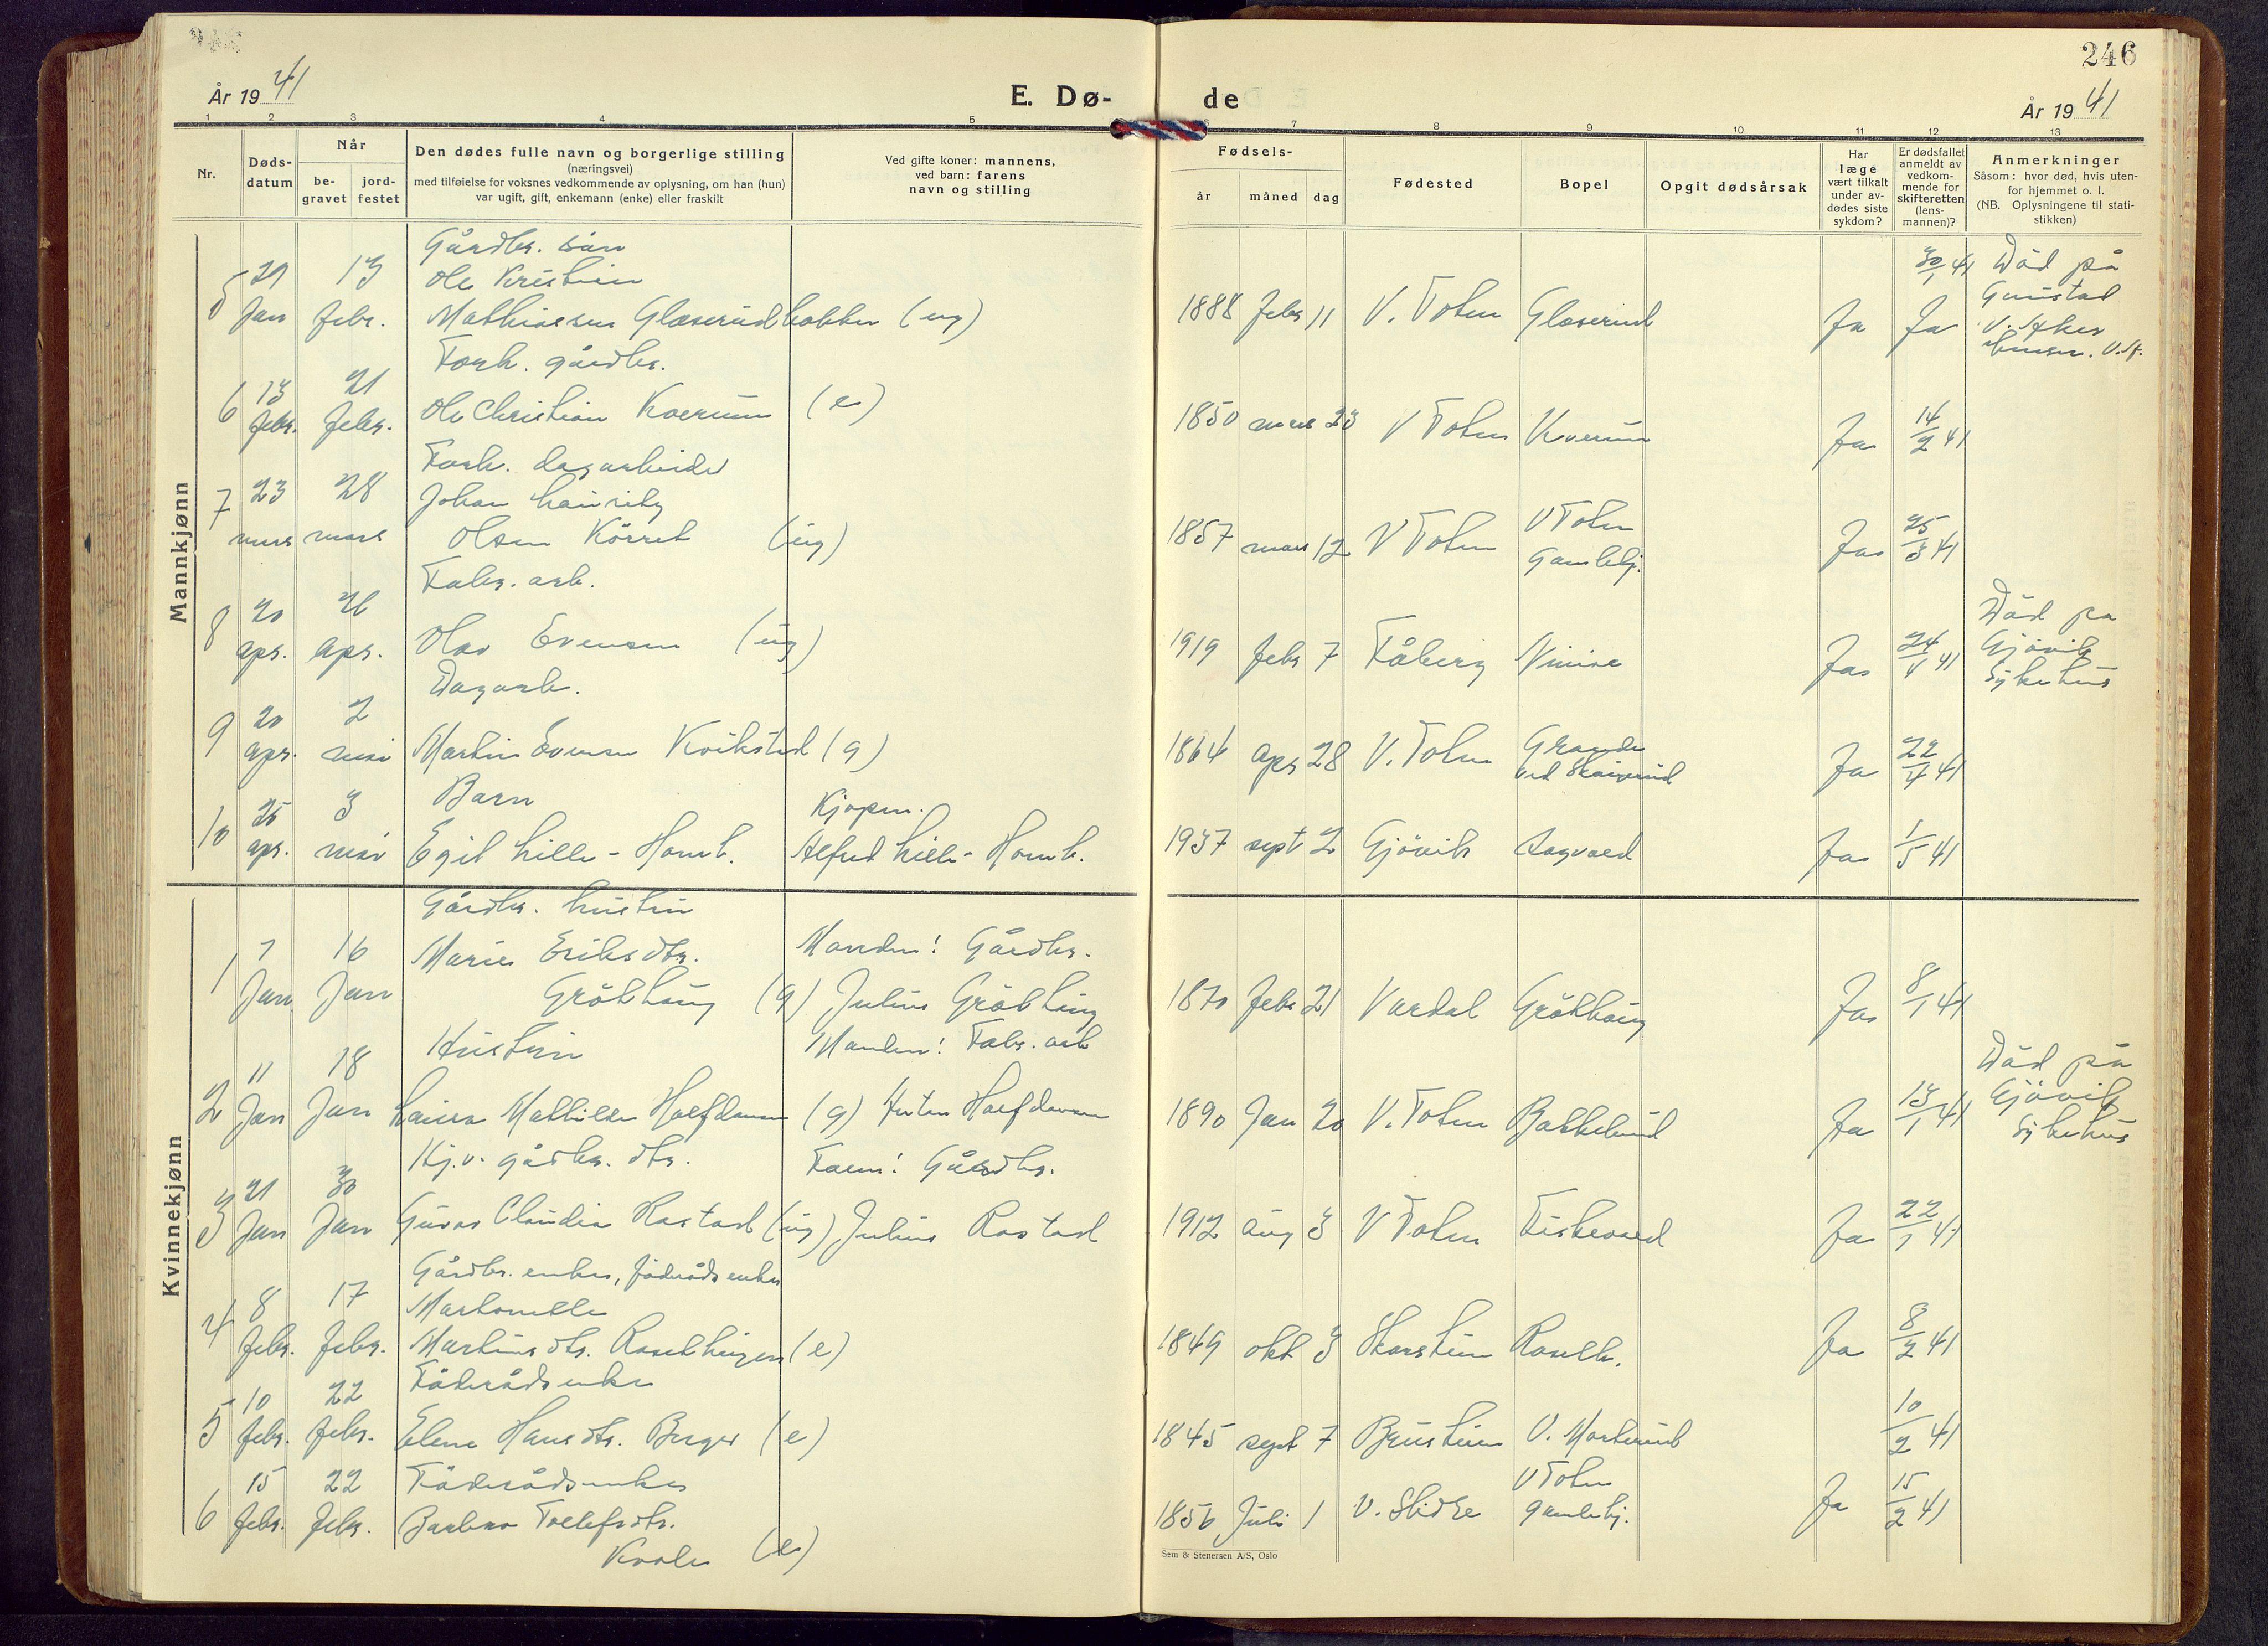 246
År 1941
E. Dø-
de
År 1941
1 2 3 4 5 6 7 8 9 10 11 12 13
Nr.
Døds-
datum
Når
be-
gravet
jord-
festet
Den dødes fulle navn og borgerlige stilling
(næringsvei)
med tilføielse for voksnes vedkommende av oplysning, om han (hun)
var ugift, gift, enkemann (enke) eller fraskilt
Ved gifte koner: mannens,
ved barn: farens
navn og stilling
Fødsels-
år
måned
dag
Fødested
Bopel
Opgit dødsårsak
Har
læge
vært tilkalt
under av-
dødes siste
sykdom?
Er dødsfallet
anmeldt av
vedkom-
mende for
skifteretten
(lens-
mannen)?
Anmerkninger
Såsom: hvor død, hvis uten-
for hjemmet o. l.
(NB. Oplysningene til stati-
stikken)
Mannkjønn
Gårdbr. sön
5 29 13 Ole Kristian 30/1 41 Död på
Jan febr. Mathiasen Glæserudbakken (ug) 1888 febr 11 V. Toten Glæserud Ja Ja Gaustad
V. Aker
Forh. gårdbr.
6 13 21
febr. febr. Ole Christian Kværum (e) 1850 mars 23 V Toten Kværum Ja 14/2 41
Forh. dagarbeider
7 23 28 Johan Lauritz V Toten
mars mars Olsen Körret (ug) 1857 mars 12 V Toten Gamlehj. Ja 25/3 41
Fabr. arb.
8 20 26 Död på
apr. apr. Olav Evensen (ug) 1919 febr 7 Fåberg Ja 24/4 41 Gjövik
Sykehus
Dagarb.
9 20 2
apr. mai Martin Evensen Kvikstad (g) 1864 apr 28 V. Toten Ja 22/4 41
Barn Kjøpm.
10 25 3
apr. mai Egil Lille-Homb. Alfred Lille-Homb. 1937 sept 2 Gjövik Aagvold Ja 1/5 41
Kvinnekjønn
Gårdbr. hustru
1 7 16 Marie Eriksdtr. Manden: Gårdbr.
Jan Jan Grölhaug (g) Julius Grölhaug 1870 febr 21 Vardal Grölhaug Ja 8/1 41
Hustru Manden: Fabr. arb
2 11 18 Död på
Jan Jan Laura Mathilde Halfdansen (g) Halfdansen 1890 Jan 20 V. Toten Bakkelund Ja 13/1 41 Gjövik
Sykehus
Hj.v. gårdbr. dtr. Faren: Gårdbr.
3 21 30
Jan Jan Claudia Rostad (ug) Julius Rostad 1912 aug 3 V Toten Fiskevold Ja 22/1 41
Gårdbr. enke, föderådsenke
4 8 17 Martonelle
febr. febr. Martinsdtr. (e) 1849 okt 3 Ja 8/2 41
Föderådsenke
5 10 22
febr. febr. Elene Hansdtr. Berger (e) 1845 sept 7 10/2 41
Föderådsenke V Toten
6 15 22
febr. febr. Barbro Tollefsdtr. 1856 Juli 1 V. Slidre gamlehj. Ja 15/2 41
Kvale (e)
Sem & Stenersen A/S, Oslo